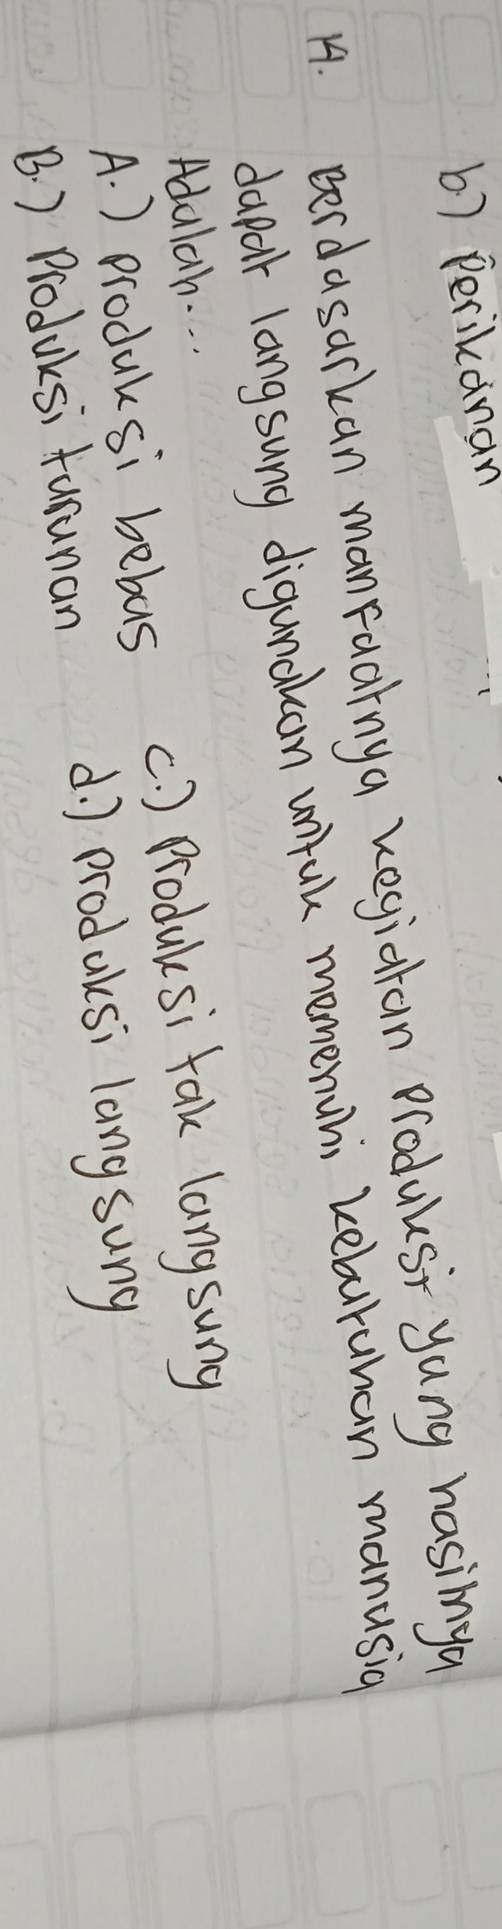 b.) Perikanan
14. Berdasarkan manfaatnya kegiatan produksi yang hasilnya
dapat langsung digunakan untuk memenuhi kebutuhan manusia
Adalah...
A.) Produksi bebas c.) Produksi tak langsung
B.) Produksi turunan d.) produksi langsung